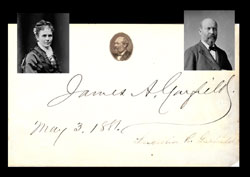 James A. Garfield.
May 3, 1881.